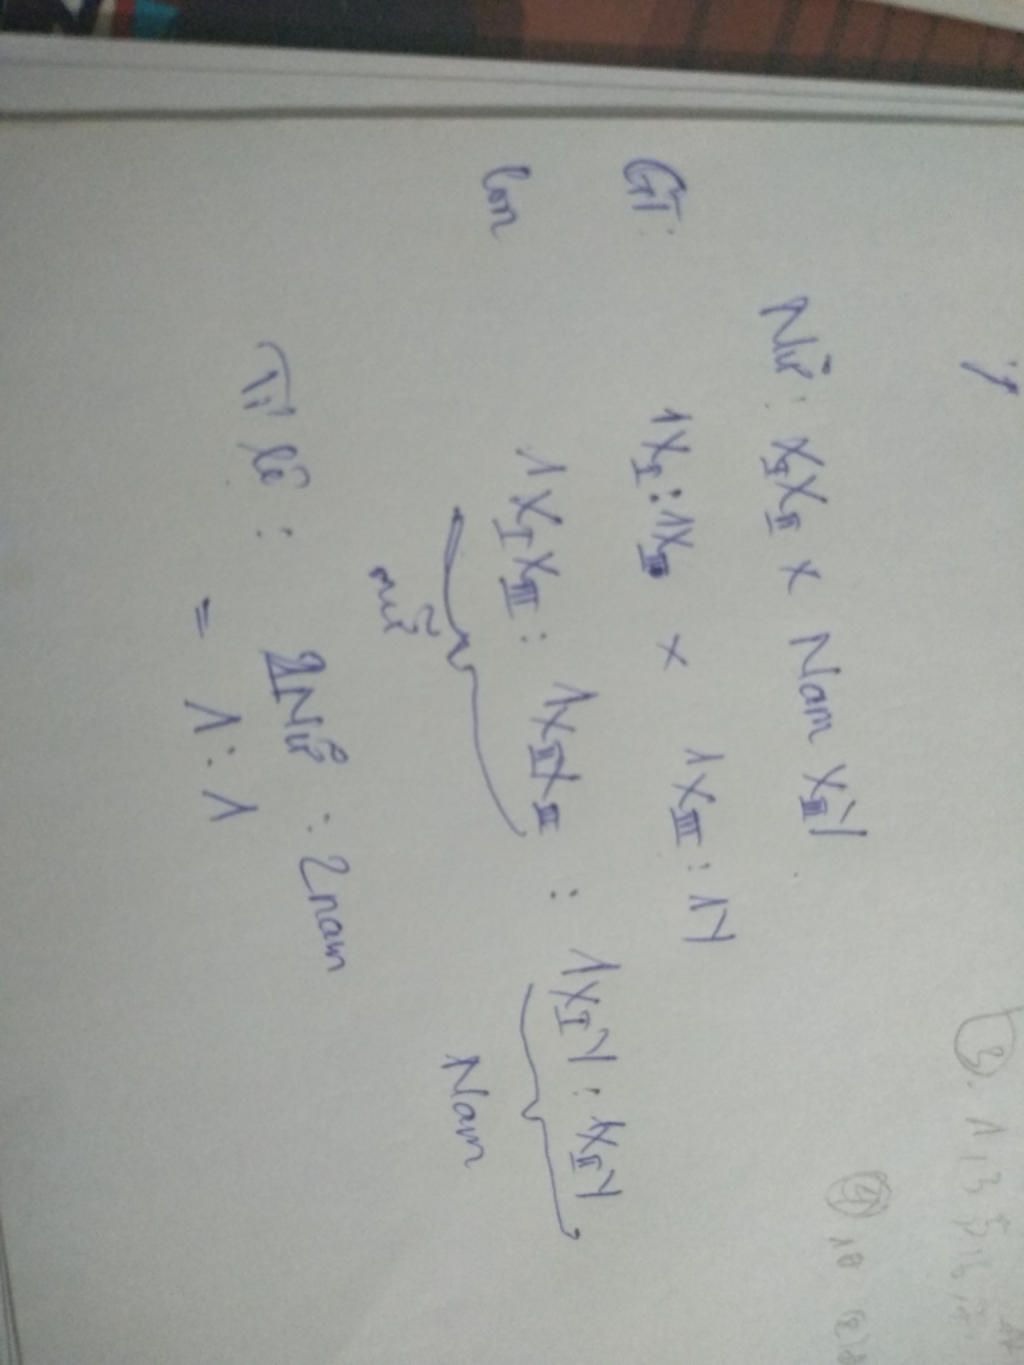 Nữ: XIXII × Nam XIIIY
GT: 1XI : 1XII × 1XIII : 1Y
Con 1XIXIII : 1XIIXIII : 1XIY : 1XIIY
nữ Nam
Tỉ lệ : 2Nữ : 2nam
= 1 : 1